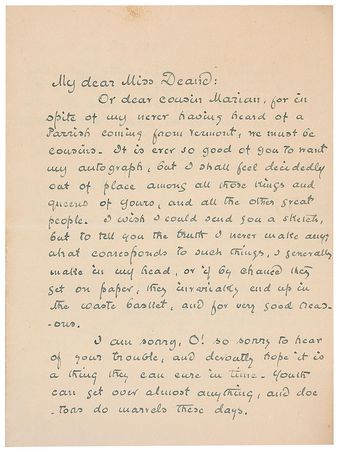 My dear Miss Deane:
Or dear cousin Marian, for in
spite of my never having heard of a
Parrish coming from Vermont, we must be
cousins. It is ever so good of you to want
my autograph, but I shall feel decidedly
out of place among all those kings and
queens of yours, and all the other great
people. I wish I could send you a sketch,
but to tell you the truth I never make any,
what corresponds to such things, I generally
make in my head, or if by chance they
get on paper, they invariably end up in
the waste basket, and for very good reas-
ons.
I am sorry, O! so sorry to hear
of your trouble, and devoutly hope it is
a thing they can cure in time. Youth
can get over almost anything, and doc-
tors do marvels these days.